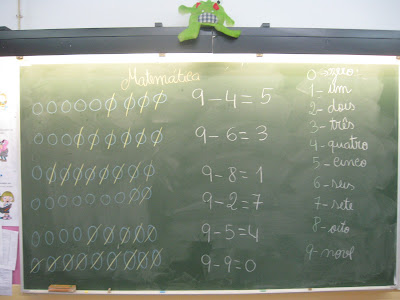 Matemática
9-4=5
9-6=3
9-8=1
9-2=7
9-5=4
9-9=0
0-zero
1-um
2-dois
3-três
4-quatro
5-cinco
6-seis
7-sete
8-oito
9-nove